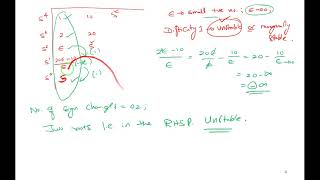 S⁴ 1 10 5
S³ 2 20
S² ε 5
S¹ 20ε-10/ε (-)
S⁰ 5 (+)
ε → Small +ve no.; ε→0
Difficulty 1 → Unstable or marginally stable.
20ε-10/ε = 20ε/ε - 10/ε = 20 - 10/ε→0
= 20 - ∞
= -∞
No. of sign changes = 02;
Two roots lie in the RHSP. Unstable.